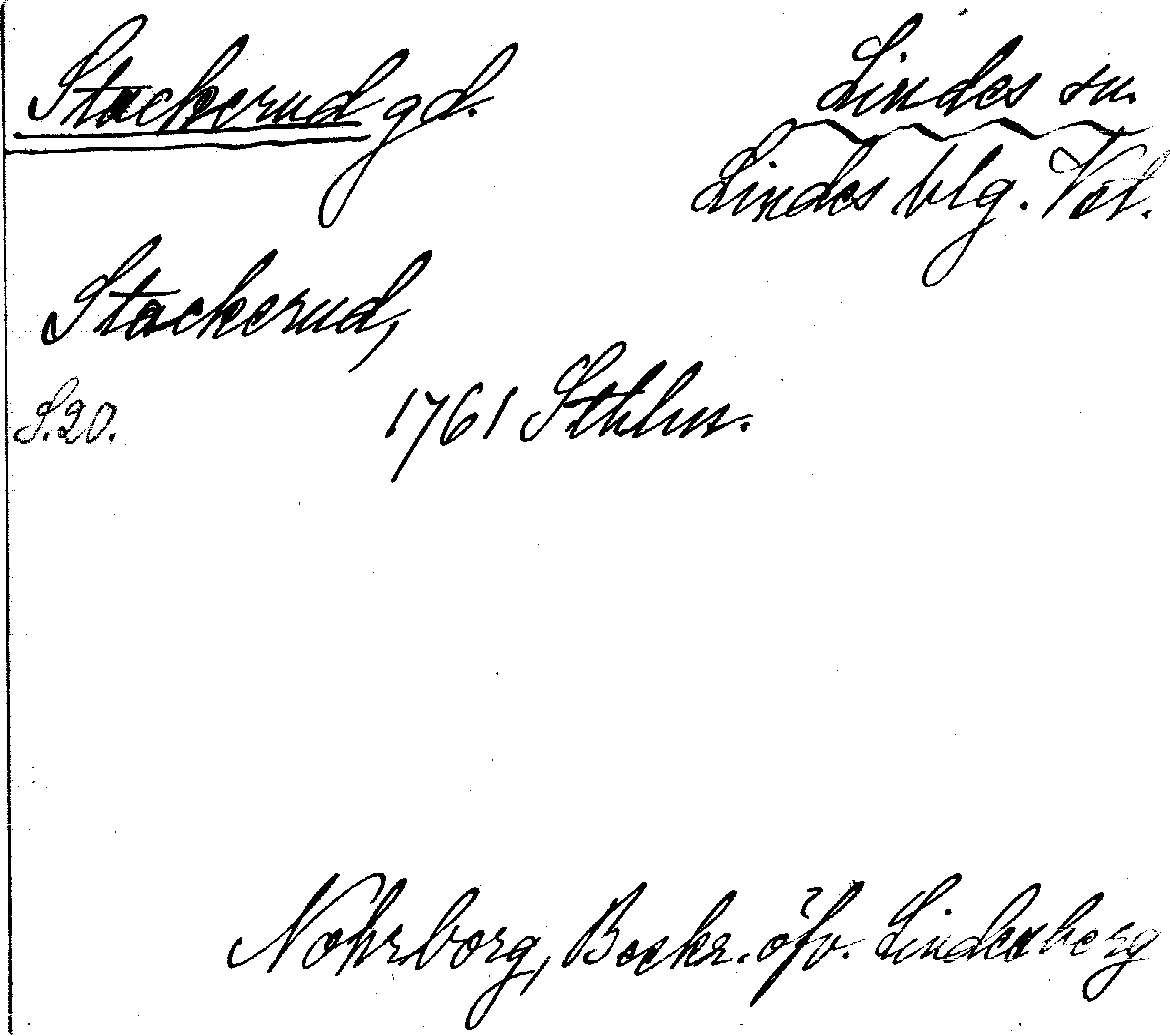 Stackerud gd.
Lindes sn.
Lindes blg. Vstl.
Stackerud,
S. 20. 1761 Sthlm.
Nohrborg, Beskr. öfv. Lindesberg